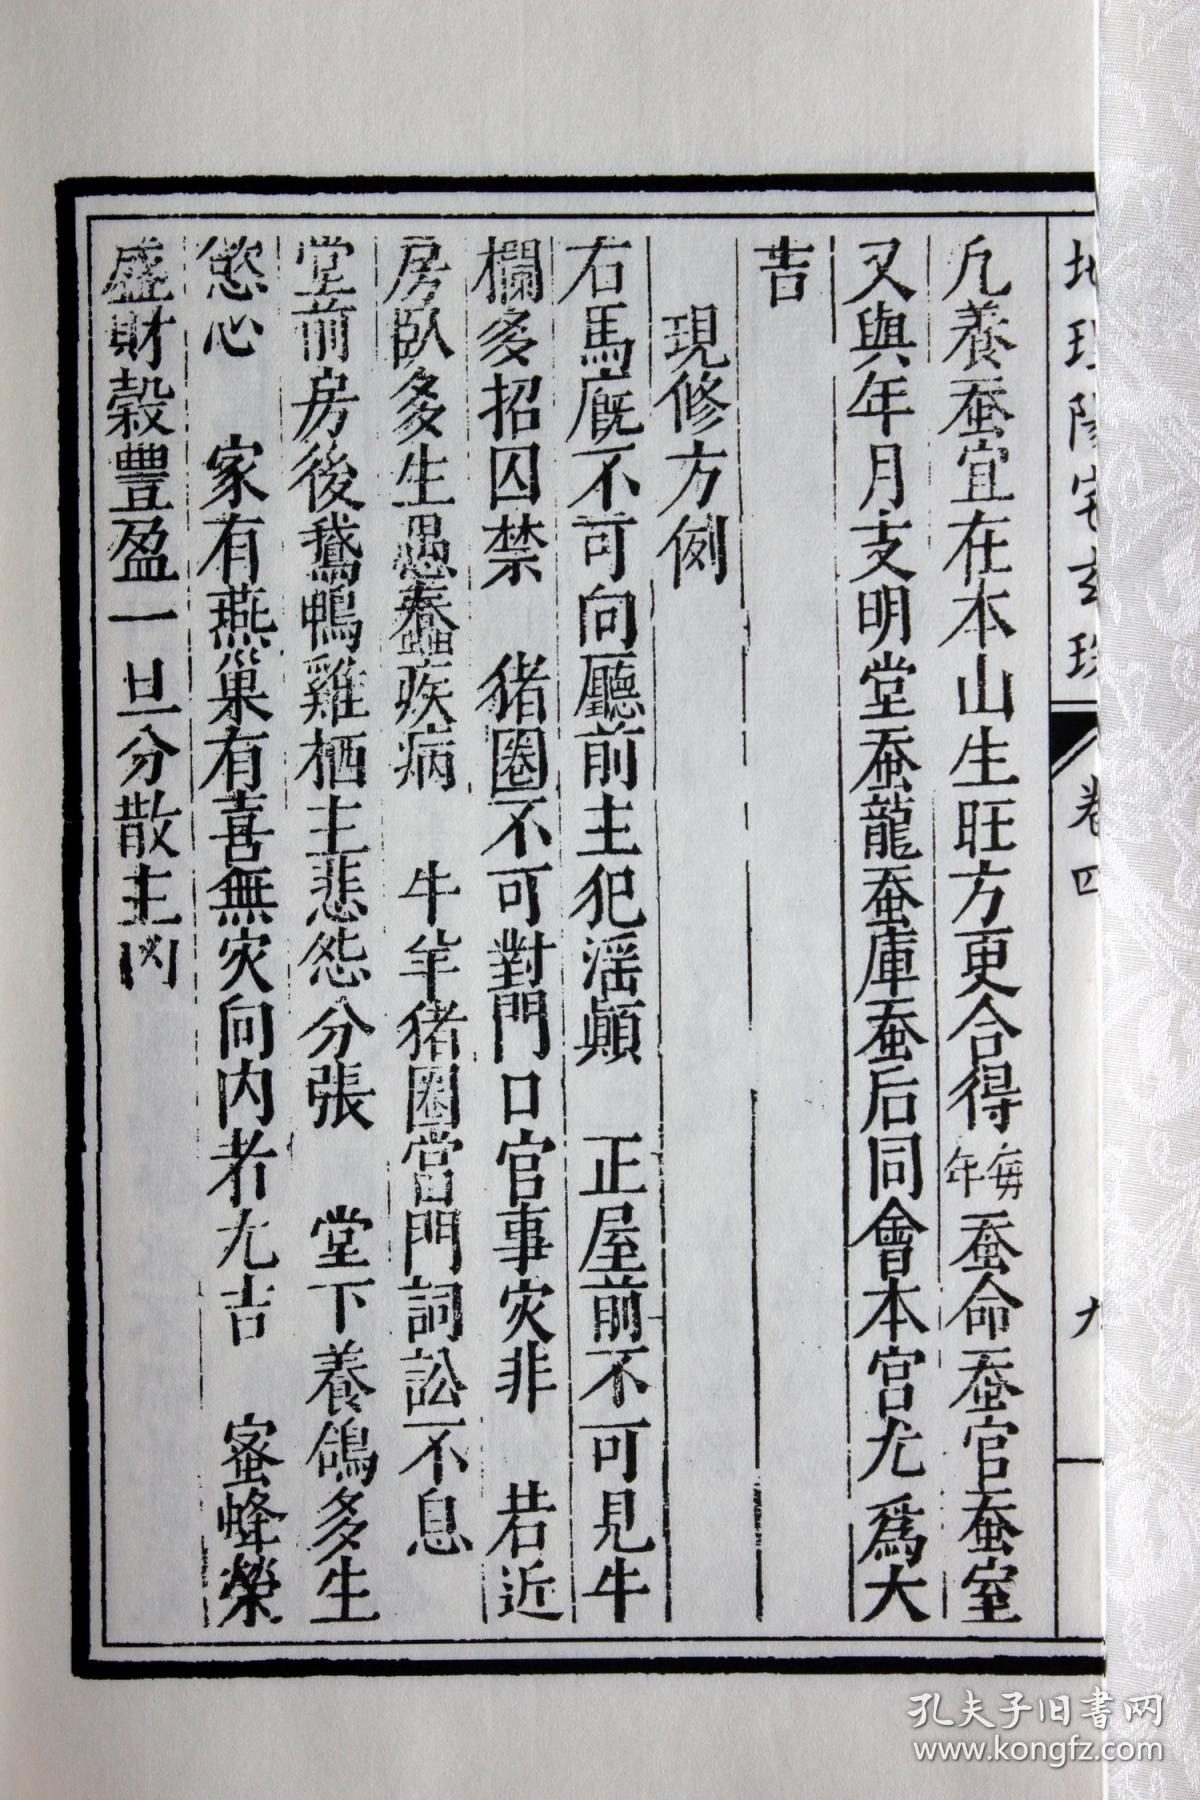 地理陽宅玄珠 卷四 九
凡養蚕宜在本山生旺方更合得每年蚕命蚕官蚕室
又與年月支明堂蚕龍蚕庫蚕后同會本宫尤爲大
吉
現修方例
右馬廐不可向廳前主犯滛顛 正屋前不可見牛
欄多招囚禁 猪圈不可對門口官事灾非 若近
房臥多生愚蠢疾病 牛羊猪圈當門詞訟不息
堂前房後鵝鴨雞栖主悲怨分張 堂下養鴿多生
慾心 家有燕巢有喜無灾向内者尤吉 蜜蜂榮
盛財穀豐盈一旦分散主凶
孔夫子旧书网
www.kongfz.com